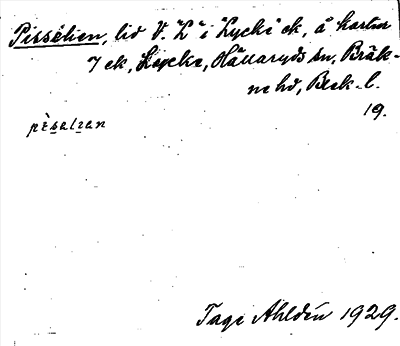 Pissélien, lid V. "L" i Lycki ek, å kartan
7 ek, Loycke, Hällaryds sn, Bräk-
ne hd, Blek. l.
19.
pèsalzan
Tage Ahldén 1929.